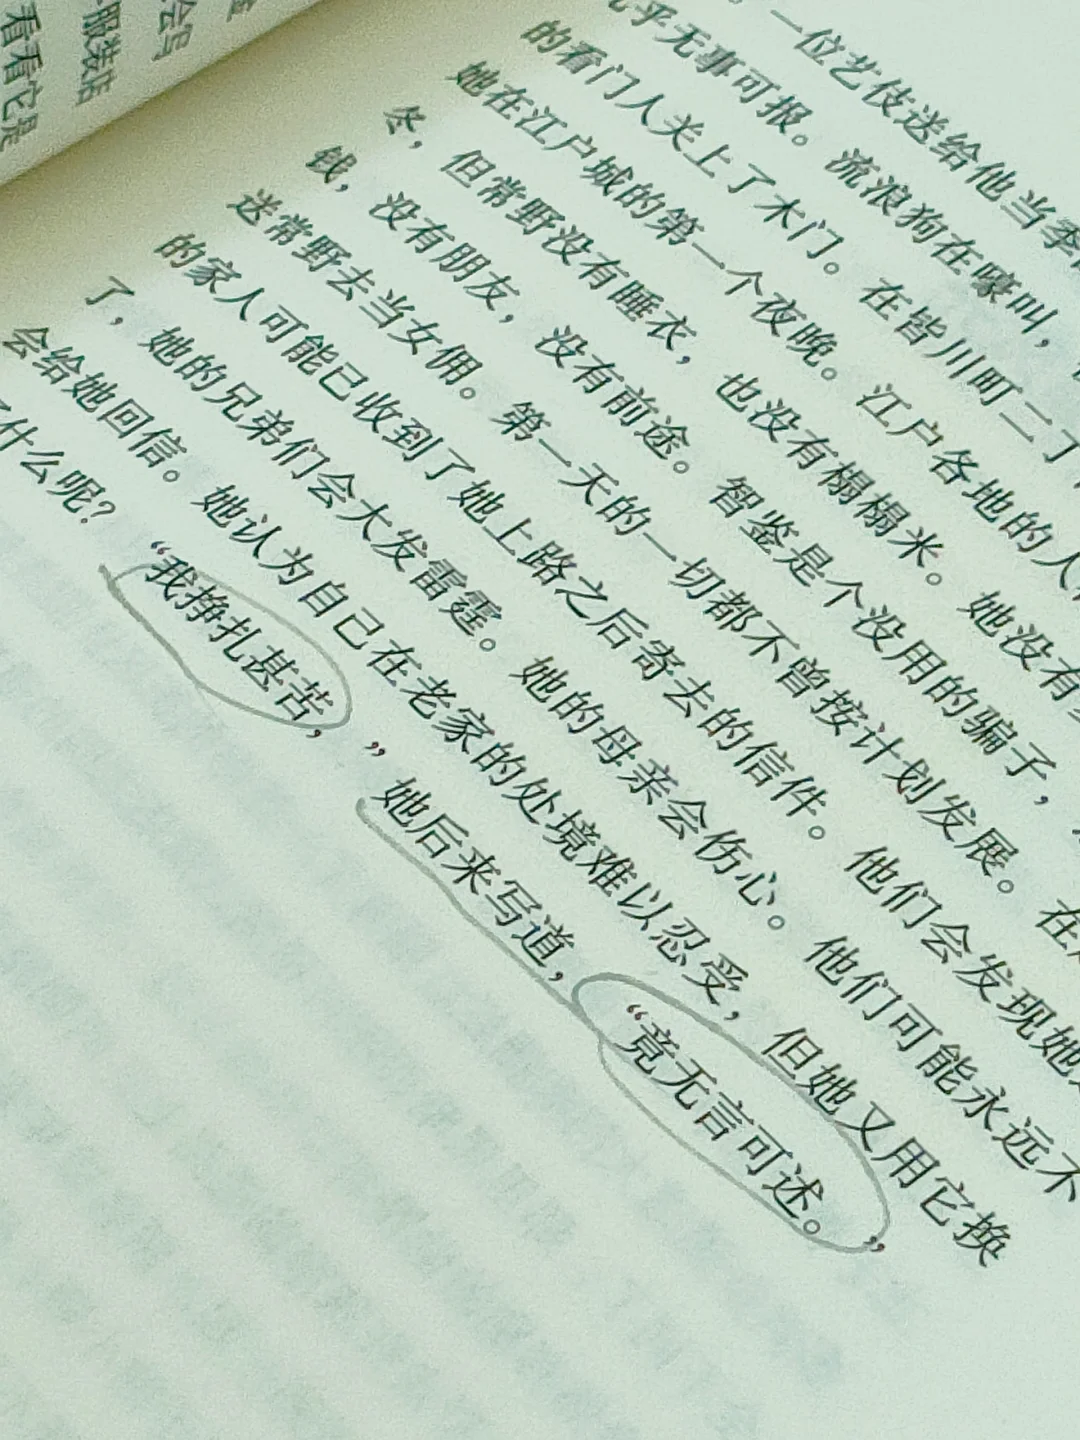 会写
服装店
看看它是
。一位艺伎送给他当季
乎无事可报。流浪狗在嚎叫，
的看门人关上了木门。在皆川町二丁
她在江户城的第一个夜晚。江户各地的人
冬，但常野没有睡衣，也没有榻榻米。她没有
钱，没有朋友，没有前途。智鉴是个没用的骗子，
送常野去当女佣。第一天的一切都不曾按计划发展。在
的家人可能已收到了她上路之后寄去的信件。他们会发现她
了，她的兄弟们会大发雷霆。她的母亲会伤心。他们可能永远不
会给她回信。她认为自己在老家的处境难以忍受，但她又用它换
了什么呢？
“我挣扎甚苦，”她后来写道，“竟无言可述。”